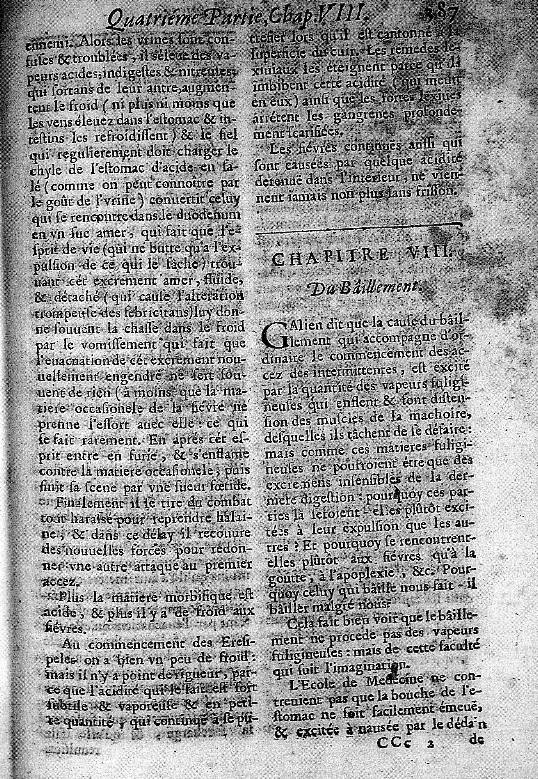 Quatriéme Partie, Chap. VIII. 387
ennemi. Alors les vrines sont con-
fuses & troublées, il s'éleve des va-
peurs acides, indigestes & nitreuses,
qui sortans de leur antre, augmen-
tent le froid (ni plus ni moins que
les vens éleuez dans l'estomac & in-
testins les refroidissent) & le fiel
qui regulierement doit charger le
chyle de l'estomac d'acide en sa-
lé (comme on peut connoître par
le goût de l'vrine) conuertit celuy
qui se rencontre dans le duodenum
en vn suc amer, qui fait que l'e-
sprit de vie (qui ne butte qu'à l'ex-
pulsion de ce qui le fâche) trou-
uant cét excrement amer, fluide,
& détaché (qui cause l'alteration
trompeuse des febricitans) luy don-
ne souuent la chasse dans le froid
par le vomissement qui fait que
l'euacuation de cét excrement nou-
uellement engendré ne sert sou-
uent de rien (à moins que la ma-
tiere occasionele de la fievre ne
prenne l'essort avec elle: ce qui
se fait rarement. En aprés cét es-
prit entre en furie, & s'enflame
contre la matiere occasionele; puis
finit sa scene par vne sueur fœtide.
Finalement il se tire du combat
tout harassé pour reprendre halai-
ne, & dans ce délay il recouure
des nouuelles forces pour redon-
ner vne autre attaque au premier
accez.
Plus la matiere morbifique est
acide, & plus il y a de froid aux
fiévres.
Au commencement des Eresi-
peles on a bien vn peu de froid:
mais il n'y a point de rigueur, par-
ce que l'acidité qui le fait est fort
subtile & vaporeuse & en peti-
te quantité, qui continuë à se
trefier lors qu'il est cantonné à la
superficie du cuir. Les remedes le-
xiuiaux les éteignent parce qu'ils
imbibent cette acidité (qui meurt
en eux) ainsi que les fortes lexiues
arrétent les gangrenes profonde-
ment scarifiées.
Les fiévres continuës aussi qui
sont causées par quelque acidité
detenuë dans l'interieur, ne vien-
nent iamais non plus sans frisson.
CHAPITRE VIII.
Du Bâillement.
GAlien dit que la cause du bâil-
lement qui accompagne d'or-
dinaire le commencement des ac-
cez des intermittentes, est excité
par la quantité des vapeurs fulig-
neuses qui enflent & font disten-
sion des muscles de la machoire,
desquelles ils tâchent de se défaire:
mais comme ces matieres fuligi-
neuses ne pourroient étre que des
excremens insensibles de la der-
niere digestion: pourquoy ces par-
ties là seroient-elles plûtôt exci-
tées à leur expulsion que les au-
tres? Et pourquoy se rencontrent-
elles plûtôt aux fiévres qu'à la
goutte, à l'apoplexie, &c. Pour-
quoy celuy qui bâille nous fait-il
bâiller malgré nous.
Cela fait bien voir que le bâille-
ment ne procede pas des vapeurs
fuligineuses: mais de cette faculté
qui suit l'imagination.
L'Ecole de Medecine ne con-
treuient pas que la bouche de l'e-
stomac ne soit facilement émeuë,
& excitée à nausée par le dédain
CCc 2 de